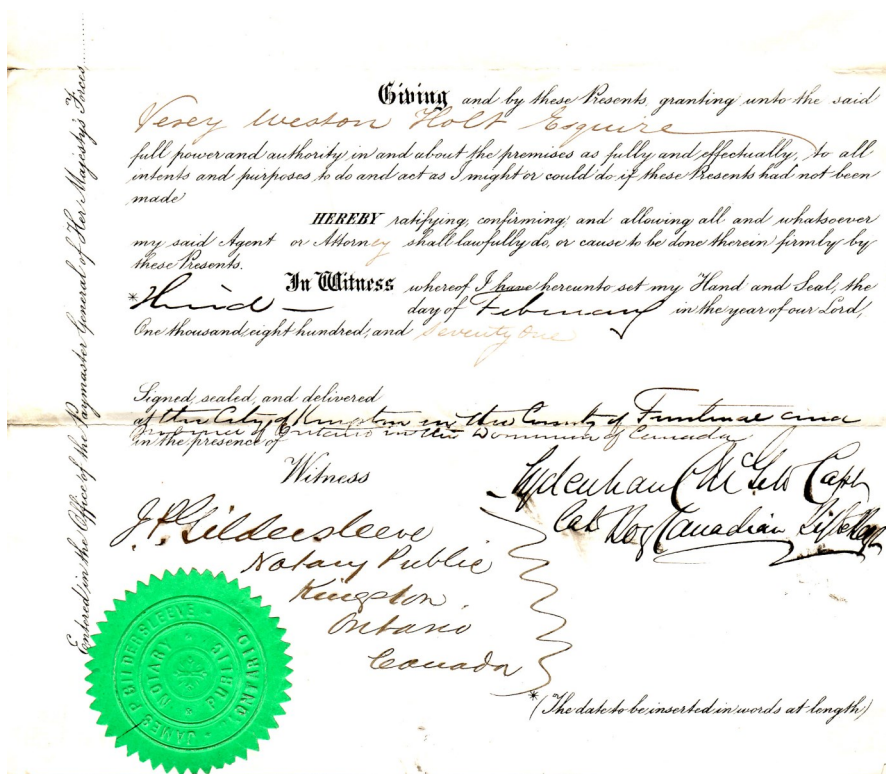 Entered in the Office of the Paymaster General of Her Majesty's Forces
Giving and by these Presents, granting unto the said
Vesey Weston Holt Esquire
full power and authority, in and about the premises as fully and effectually, to all
intents and purposes, to do and act as I might or could do if these Presents had not been
made
HEREBY ratifying, confirming, and allowing all and whatsoever
my said Agent or Attorney shall lawfully do, or cause to be done therein firmly by
these Presents.
In Witness whereof I have hereunto set my Hand and Seal, the
* Third day of February in the year of our Lord,
One thousand, eight hundred, and Seventy One
Signed, sealed, and delivered
at the City of Kingston in the County of Frontenac and
Province of Ontario in the Dominion of Canada
in the presence of
Witness
Sydenham Capt
Canadian Rifle
J.P. Gildersleeve
Notary Public
Kingston
Ontario
Canada
JAMES P GILDERSLEEVE
NOTARY PUBLIC
* (The date to be inserted in words at length)